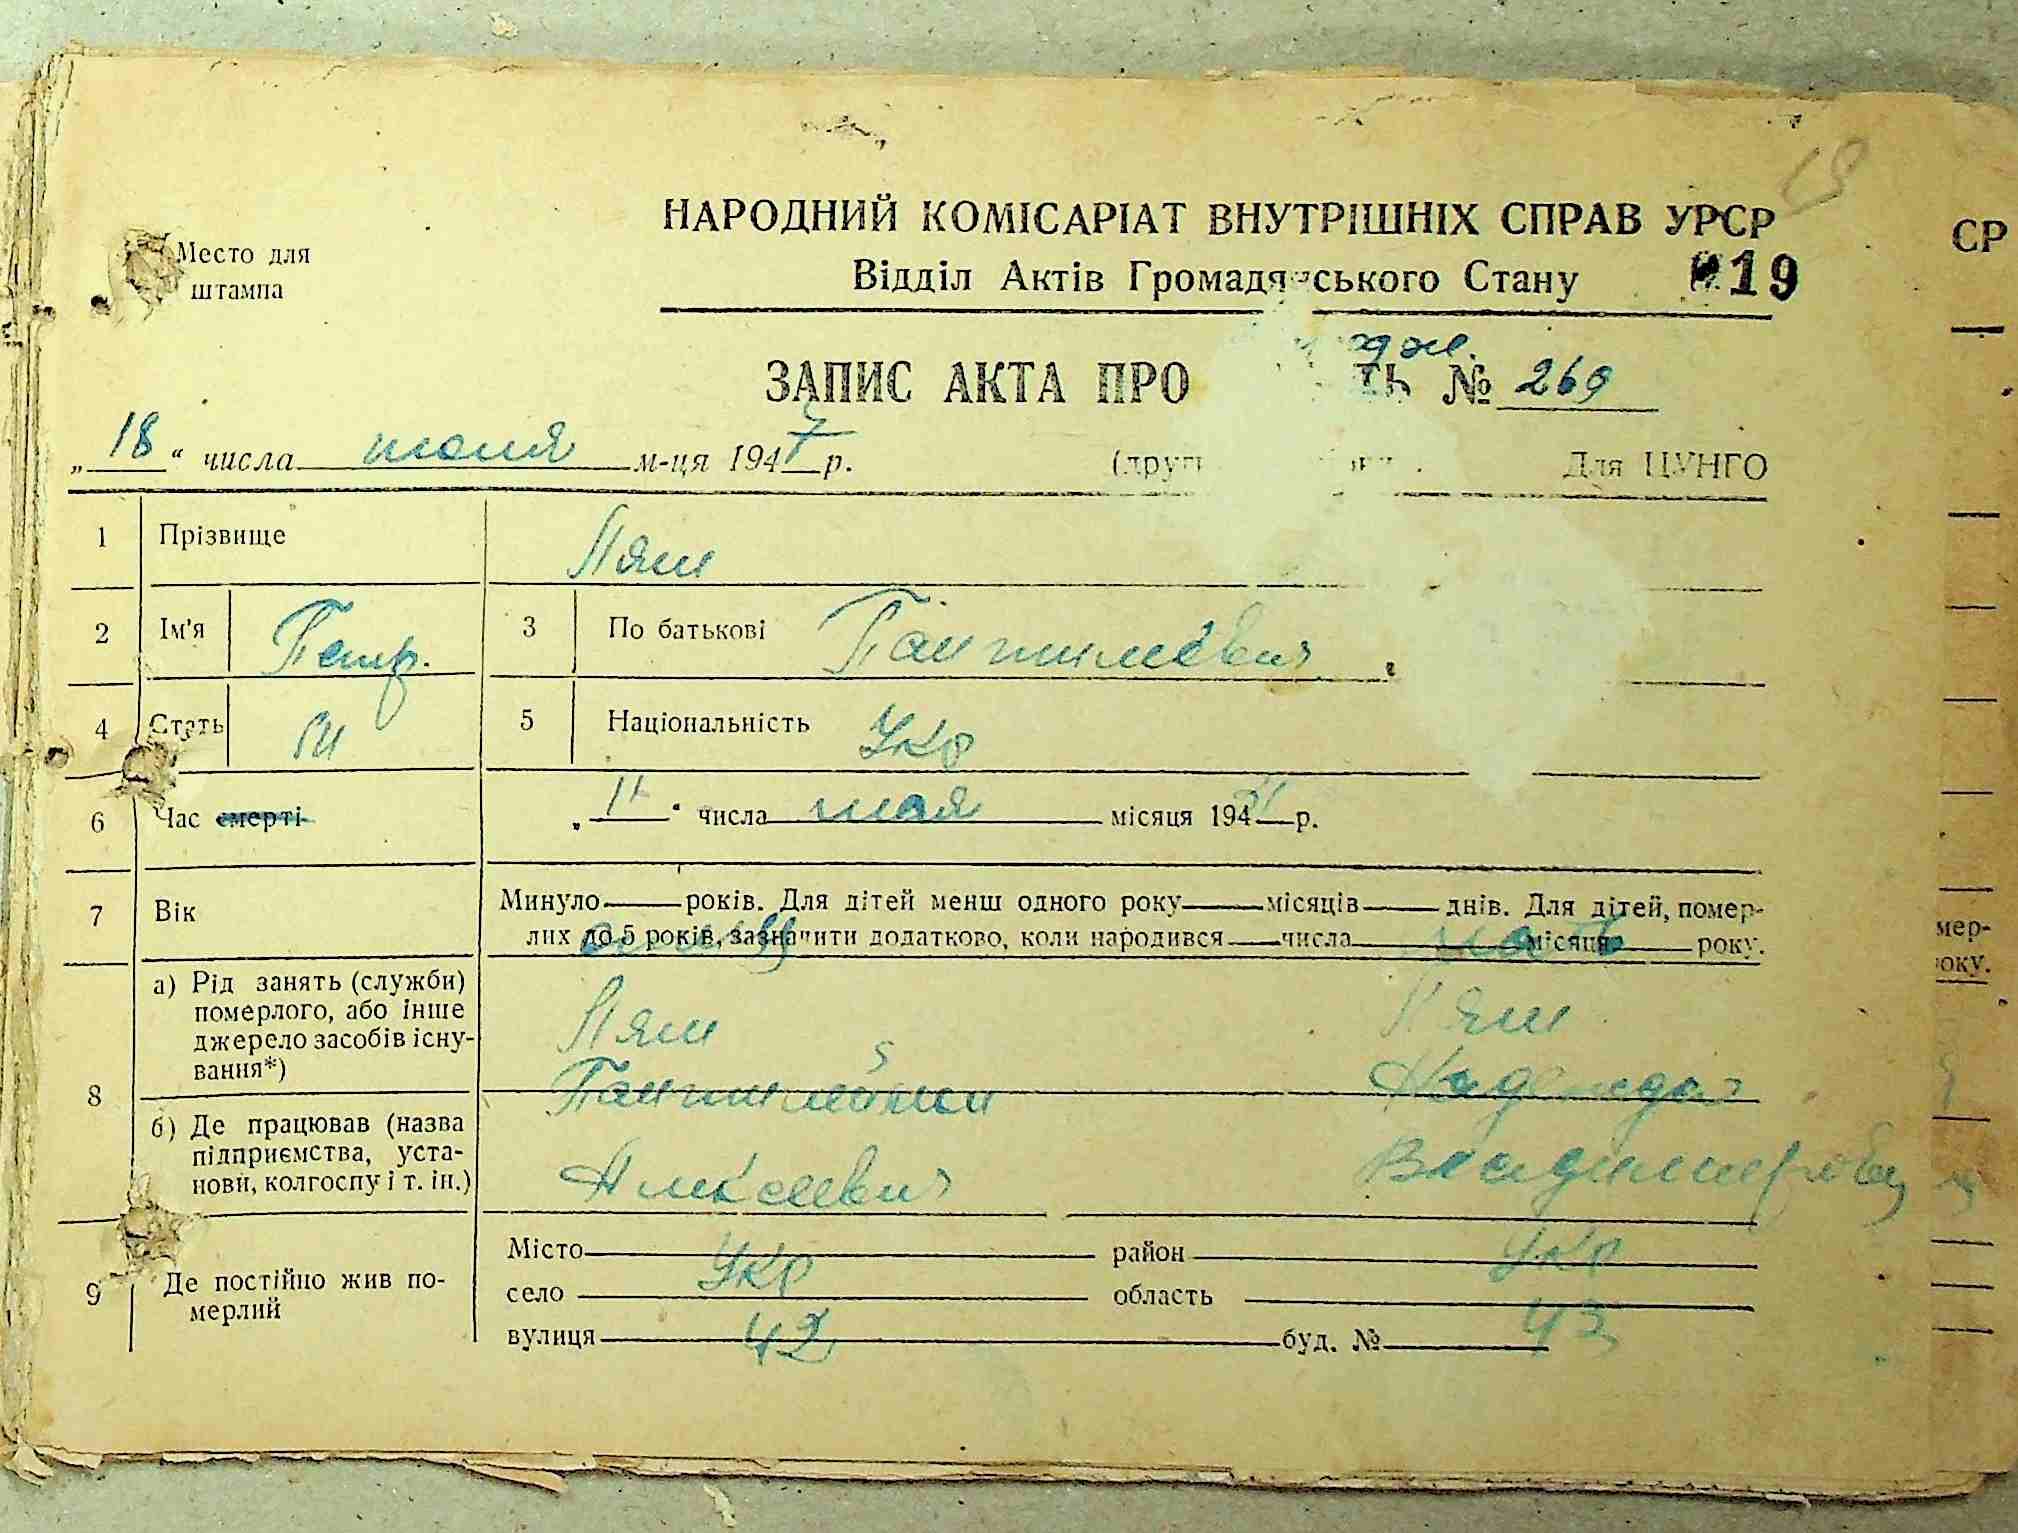 19
НАРОДНИЙ КОМІСАРІАТ ВНУТРІШНІХ СПРАВ УРСР
СР
Место для
штампа
Відділ Актів Громадянського Стану
19
ЗАПИС АКТА ПРО № 269
„18“ числа июля м-ця 1947 р. Для ЦУНГО
1 Прізвище Ляш
2 Ім'я Петр. 3 По батькові Пантилеевич
4 Стать м 5 Національність Укр
6 Час смерті „11“ числа мая місяця 194 р.
7 Вік Минуло років. Для дітей менш одного року місяців днів. Для дітей, помер-
лих до 5 років, зазначити додатково, коли народився числа місяця року.
мер-
оку.
отец мать
8 а) Рід занять (служби)
померлого, або інше
джерело засобів існу-
вання*)
Ляш Ляш
Надежда
б) Де працював (назва
підприємства, уста-
нови, колгоспу і т. ін.)
Алексеевич Владимировна
9 Де постійно жив по-
мерлий
Місто район
Укр Укр
село область
вулиця 42 буд. № 43